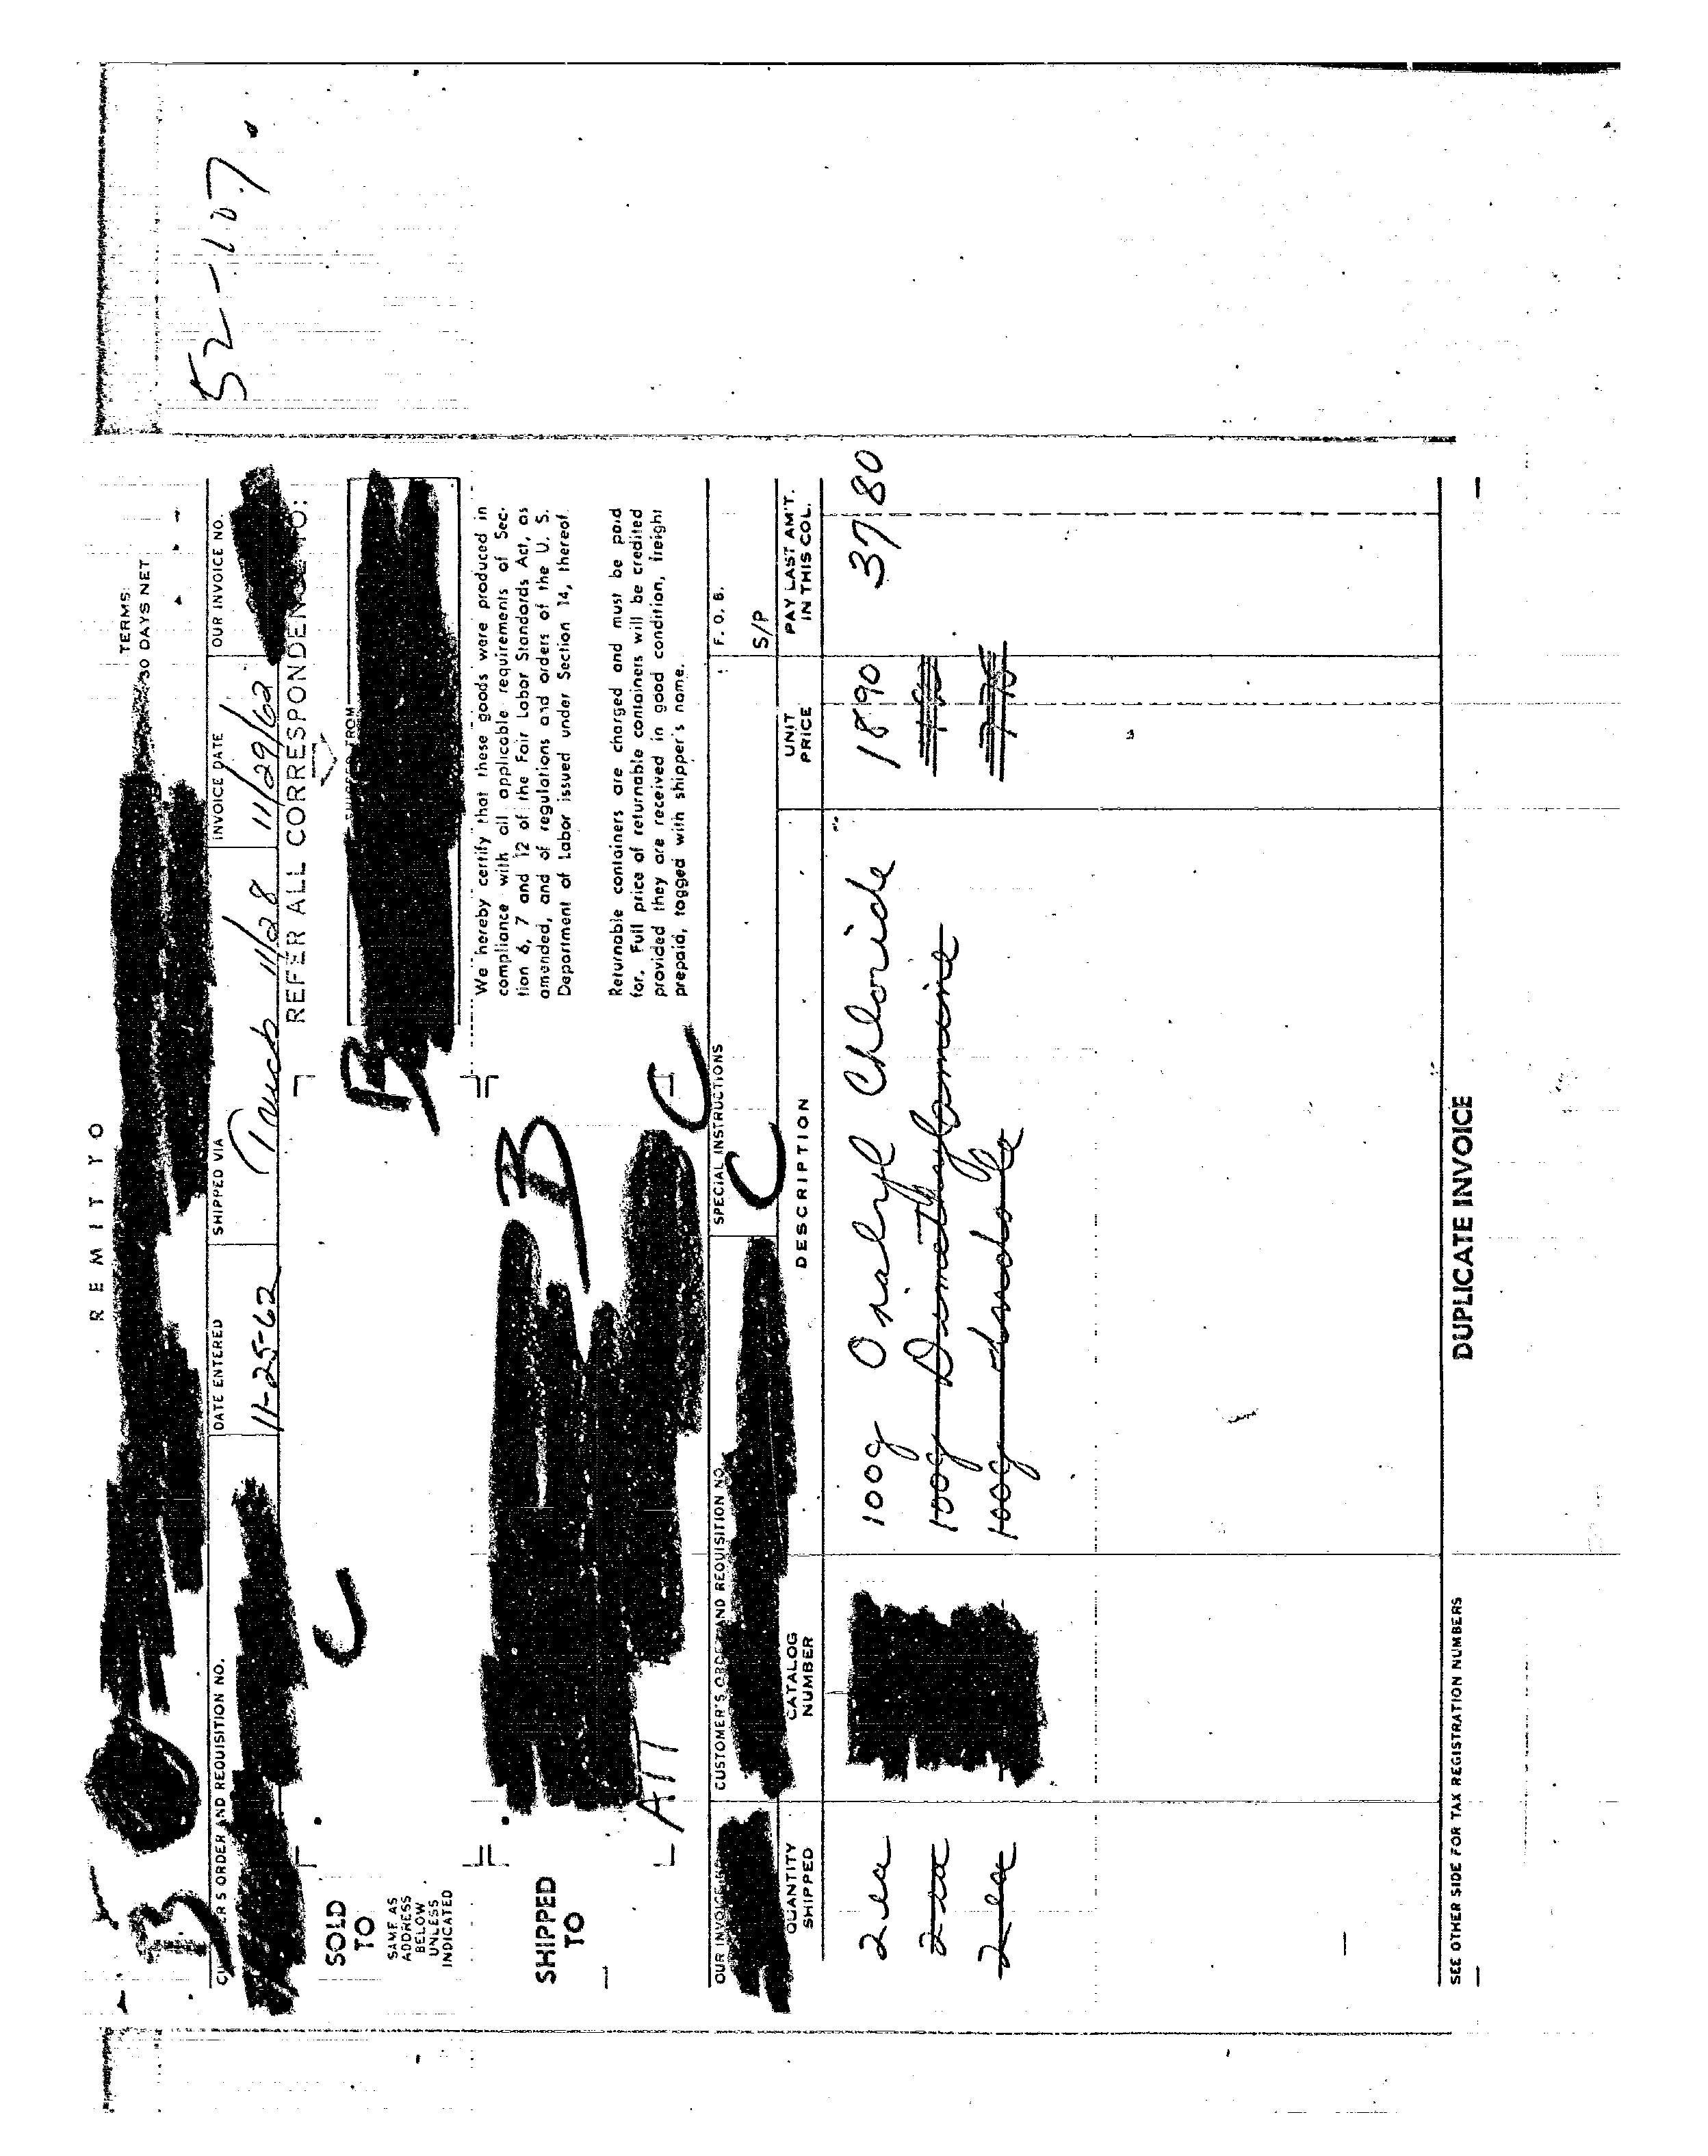 52-107
REMIT TO
TERMS:
30 DAYS NET
B
R'S ORDER AND REQUISITION NO.
DATE ENTERED
SHIPPED VIA
INVOICE DATE
OUR INVOICE NO.
11-25-62
Truck 11/28
11/29/62
REFER ALL CORRESPONDENCE TO:
SOLD
TO
SAME AS
ADDRESS
BELOW
UNLESS
INDICATED
C
B
FROM
We hereby certify that these goods were produced in
compliance with all applicable requirements of Sec-
tion 6, 7 and 12 of the Fair Labor Standards Act, as
amended, and of regulations and orders of the U. S.
Department of Labor issued under Section 14, thereof.
Returnable containers are charged and must be paid
for. Full price of returnable containers will be credited
provided they are received in good condition, freight
prepaid, tagged with shipper's name.
SHIPPED
TO
B
C
ATT
OUR INVOICE
CUSTOMER'S ORDER AND REQUISITION NO.
SPECIAL INSTRUCTIONS
F. O. B.
C
S/P
QUANTITY
SHIPPED
CATALOG
NUMBER
DESCRIPTION
UNIT
PRICE
PAY LAST AM'T.
IN THIS COL.
2 ea 100g Oxalyl Chloride 18 90 37 80
2 ea 100g
2 ea 100g
SEE OTHER SIDE FOR TAX REGISTRATION NUMBERS
DUPLICATE INVOICE